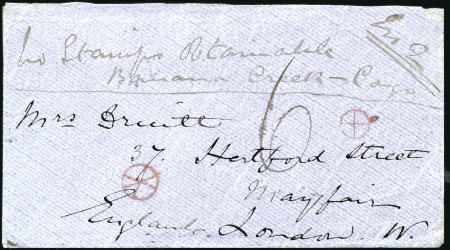 No Stamps Obtainable
Banana Creek - Congo
Mrs Druitt
37. Hertford Street
Mayfair
England. London W.